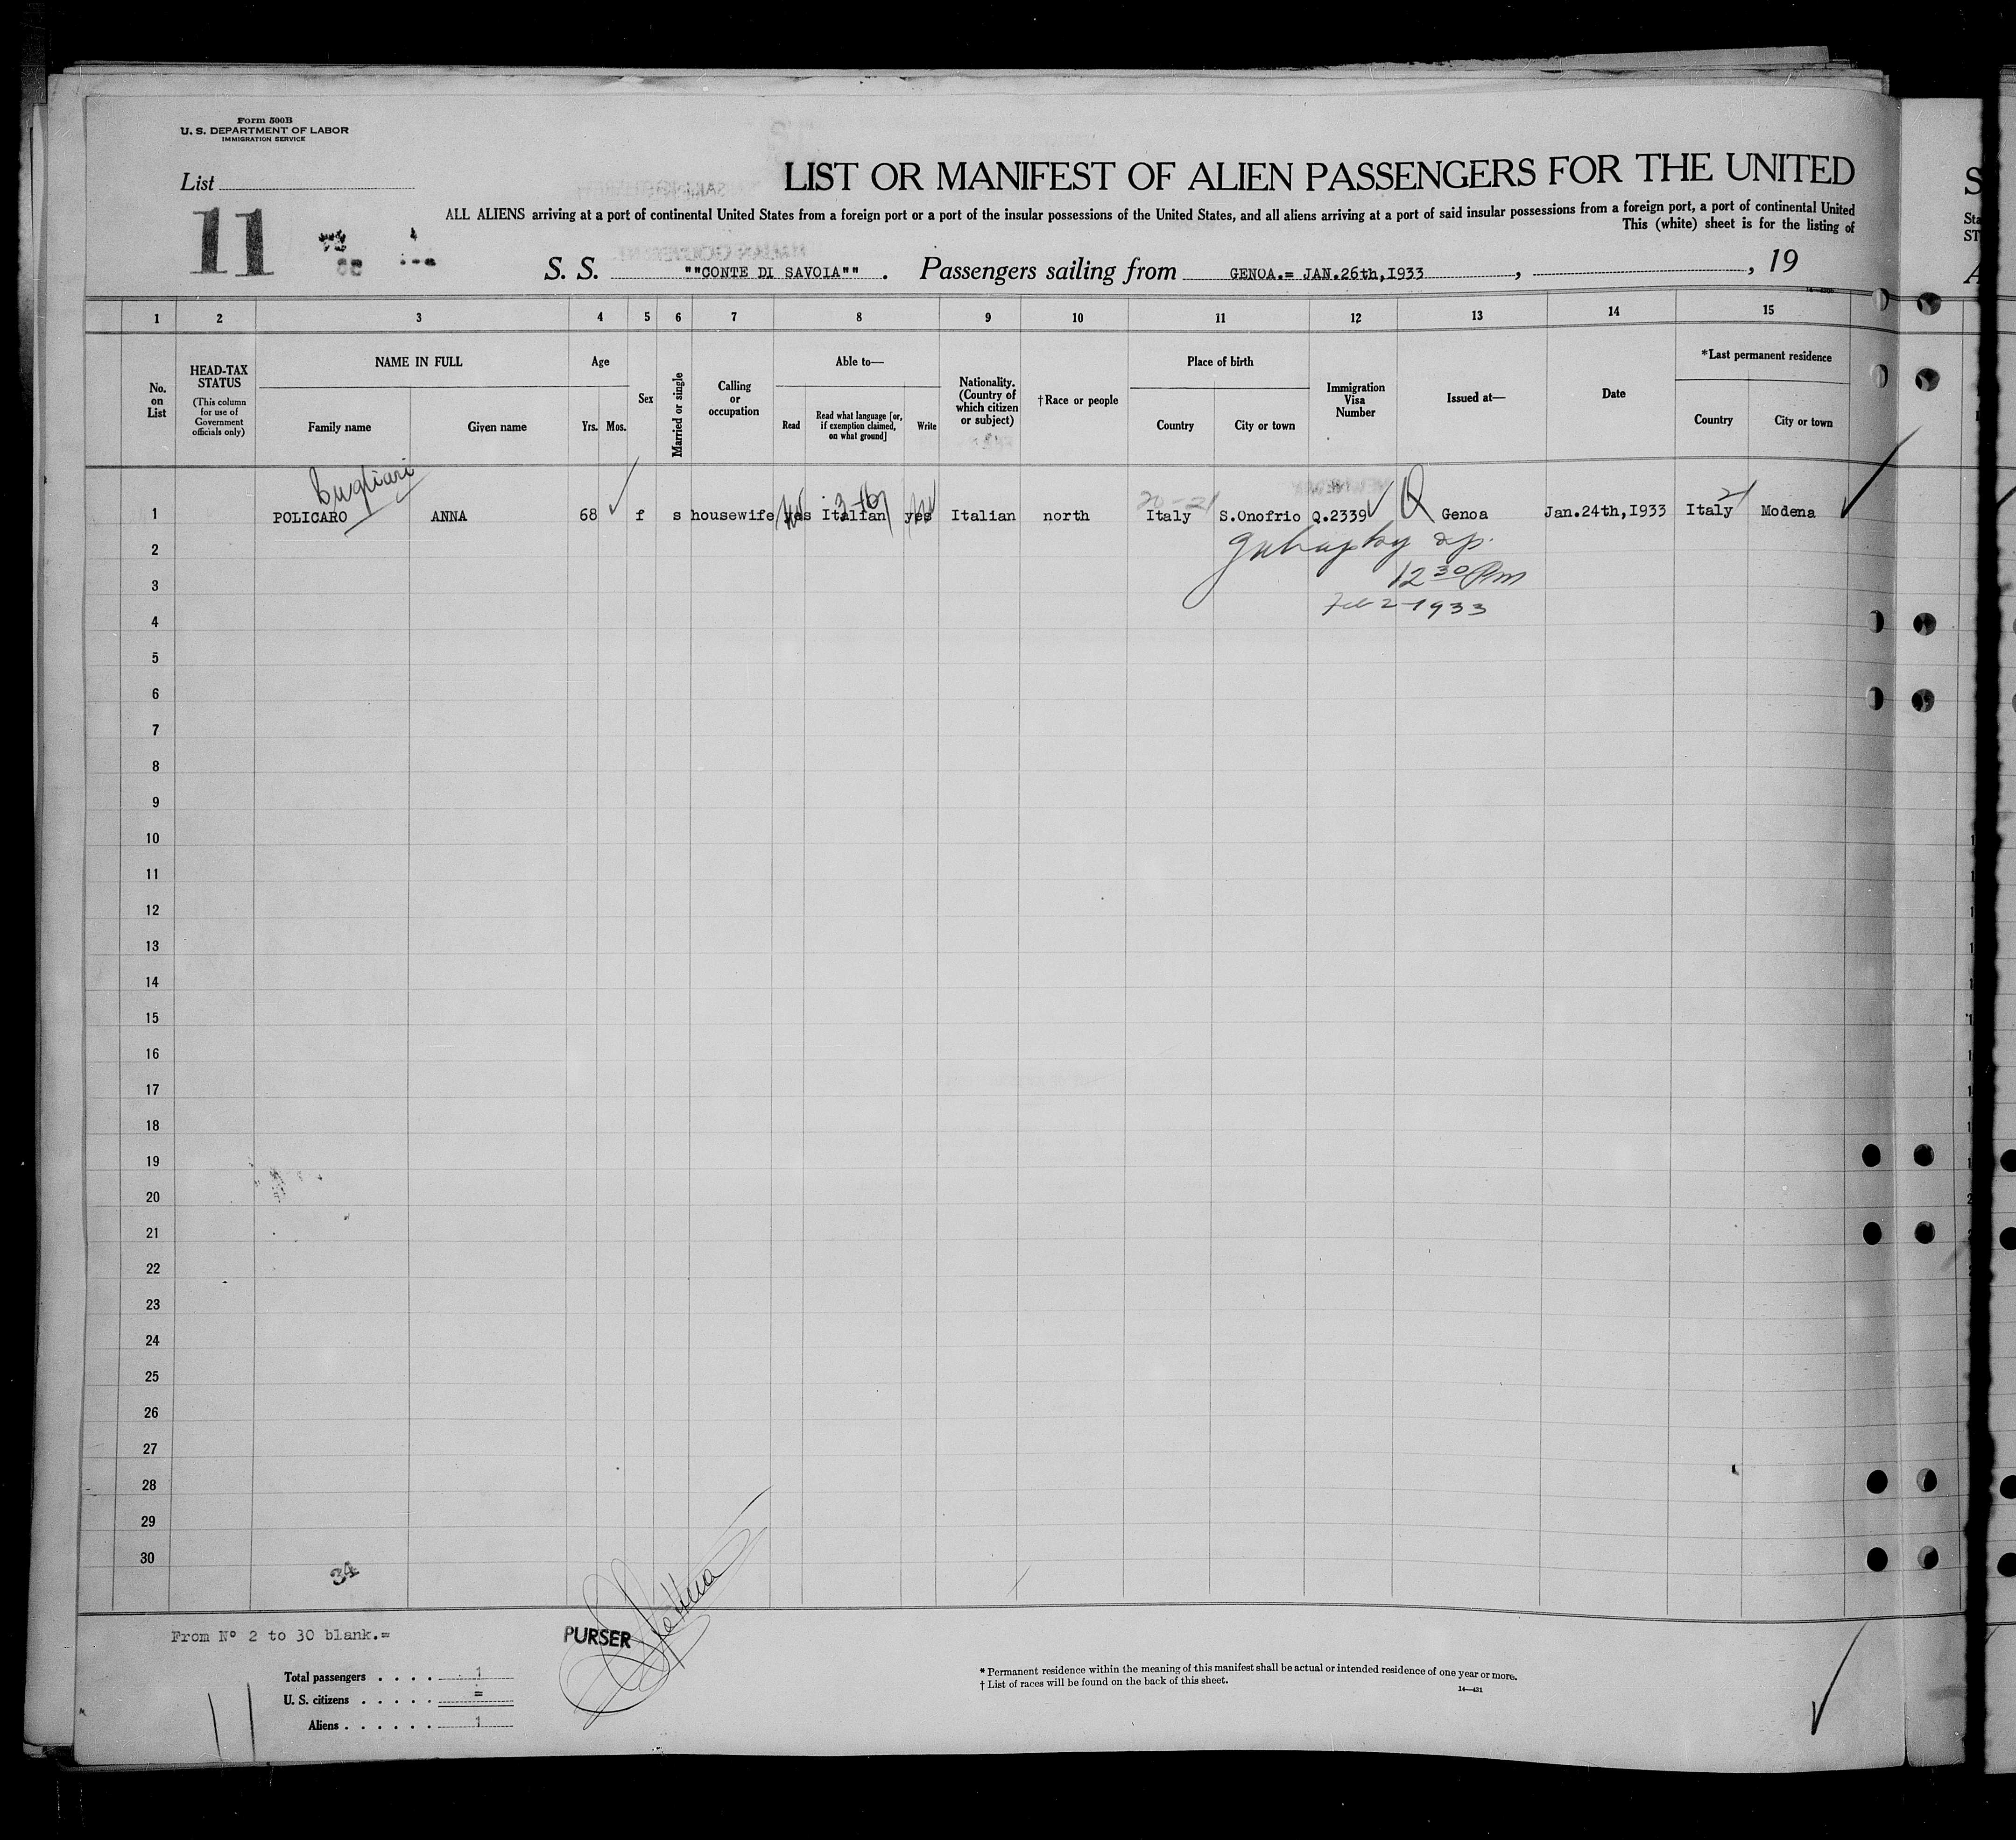 Form 500B
U. S. DEPARTMENT OF LABOR
IMMIGRATION SERVICE
List
11
LIST OR MANIFEST OF ALIEN PASSENGERS FOR THE UNITED
ALL ALIENS arriving at a port of continental United States from a foreign port or a port of the insular possessions of the United States, and all aliens arriving at a port of said insular possessions from a foreign port, a port of continental United
This (white) sheet is for the listing of
S. S. ""CONTE DI SAVOIA"" . Passengers sailing from GENOA.= JAN.26th,I933 , , 19
1 2 3 4 5 6 7 8 9 10 11 12 13 14 15
No. on List
HEAD-TAX STATUS (This column for use of Government officials only)
NAME IN FULL
Family name Given name
Age
Yrs. Mos.
Sex
Married or single
Calling or occupation
Able to—
Read
Read what language [or, if exemption claimed, on what ground]
Write
Nationality. (Country of which citizen or subject)
†Race or people
Place of birth
Country City or town
Immigration Visa Number
Issued at—
Date
*Last permanent residence
Country City or town
Bugliari
20-21 21
1 POLICARO ANNA 68 f s housewife yes Italian yes Italian north Italy S.Onofrio Q.2339 Q Genoa Jan.24th,I933 Italy Modena
2
12 30 Pm
3
Feb 2-1933
4
5
6
7
8
9
10
11
12
13
14
15
16
17
18
19
20
21
22
23
24
25
26
27
28
29
30
34
From Nº 2 to 30 blank.=
PURSER
Total passengers . . . . 1
U. S. citizens . . . . . =
Aliens . . . . . . 1
11
* Permanent residence within the meaning of this manifest shall be actual or intended residence of one year or more.
† List of races will be found on the back of this sheet.
14—431